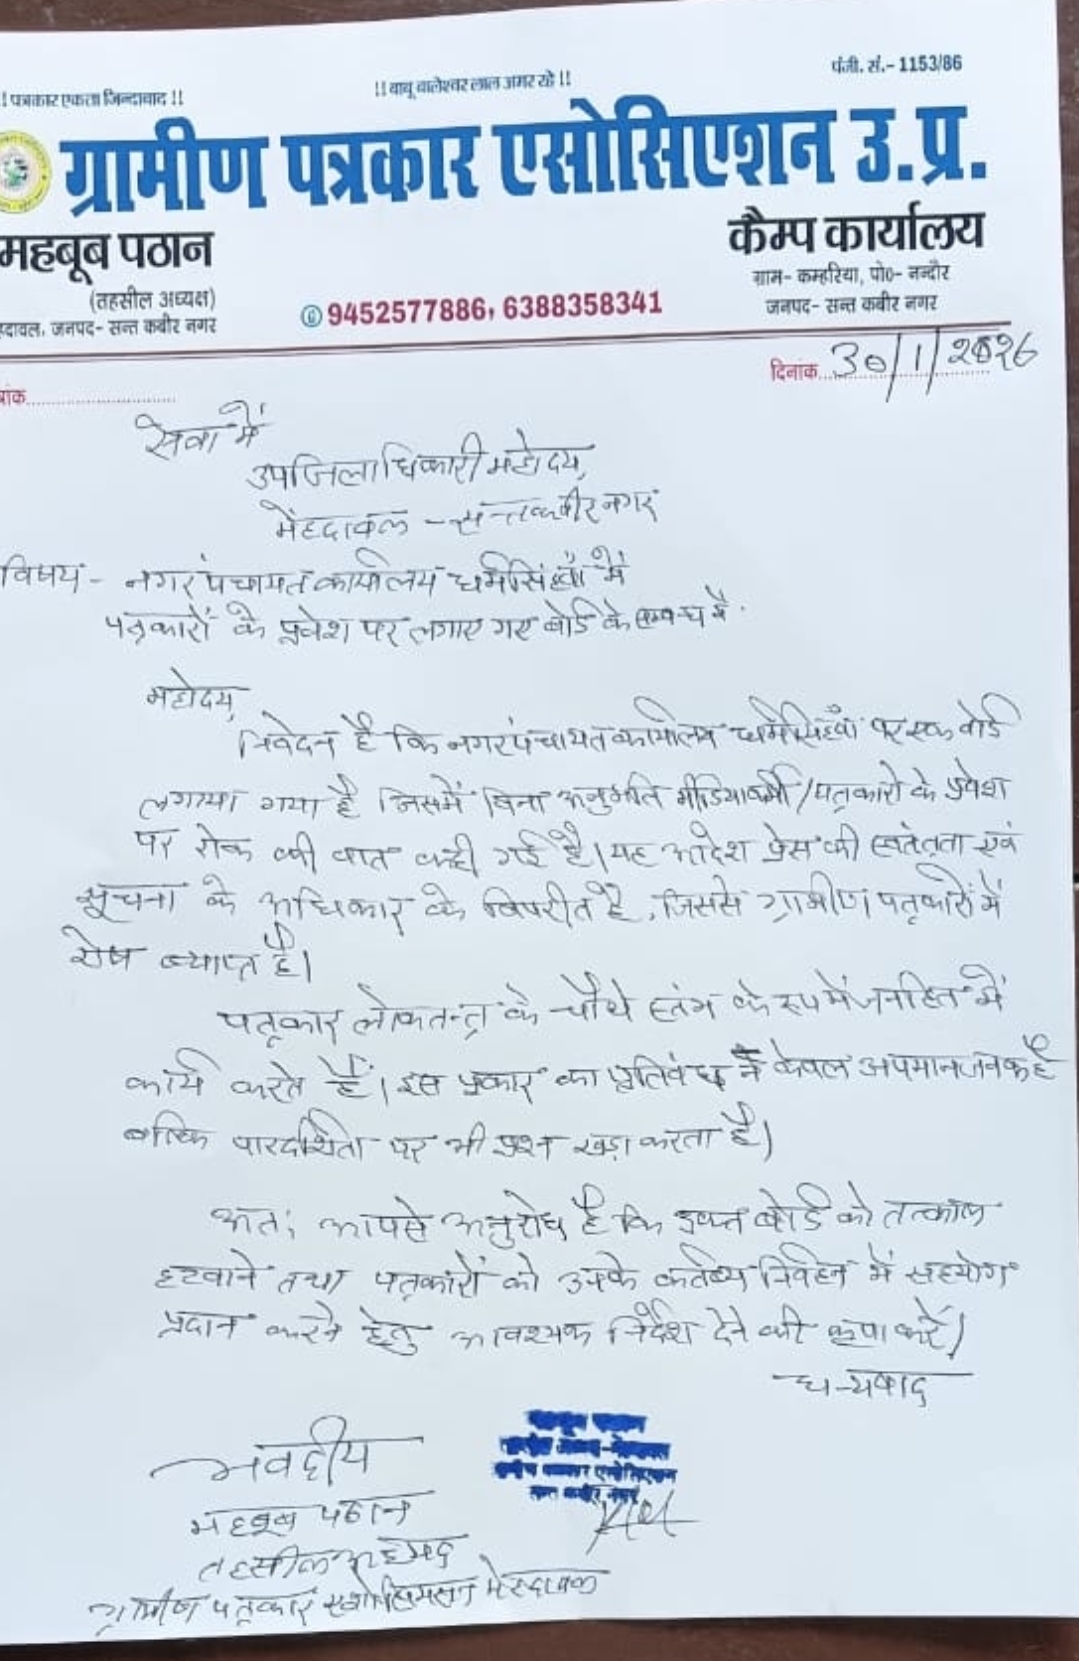 !! पत्रकार एकता जिन्दाबाद !!
!! बाबू बालेश्वर लाल अमर रहे !!
पंजी. सं.- 1153/86
ग्रामीण पत्रकार एसोसिएशन उ.प्र.
महबूब पठान
(तहसील अध्यक्ष)
दावल, जनपद- सन्त कबीर नगर
9452577886, 6388358341
कैम्प कार्यालय
ग्राम- कम्हरिया, पो0- नन्दौर
जनपद- सन्त कबीर नगर
ांक
दिनांक 30/1/2026
सेवा में
उपजिलाधिकारी महोदय,
मेंहदावल - सन्तकबीर नगर
विषय- नगर पंचायत कार्यालय धर्मसिंहवाँ में
पत्रकारों के प्रवेश पर लगाए गए बोर्ड के सम्बन्ध में.
महोदय,
निवेदन है कि नगर पंचायत कार्यालय धर्मसिंहवाँ पर एक बोर्ड
लगाया गया है जिसमें बिना अनुमति मीडियाकर्मी/पत्रकारों के प्रवेश
पर रोक की बात कही गई है। यह आदेश प्रेस की स्वतंत्रता एवं
सूचना के अधिकार के विपरीत है, जिससे ग्रामीण पत्रकारों में
रोष व्याप्त है।
पत्रकार लोकतन्त्र के चौथे स्तंभ के रूप में जनहित में
कार्य करते हैं। इस प्रकार का प्रतिबंध न केवल अपमानजनक है
बल्कि पारदर्शिता पर भी प्रश्न खड़ा करता है।
अतः आपसे अनुरोध है कि उक्त बोर्ड को तत्काल
हटवाने तथा पत्रकारों को उनके कर्तव्य निर्वहन में सहयोग
प्रदान करने हेतु आवश्यक निर्देश देने की कृपा करें।
धन्यवाद
भवदीय
महबूब पठान
तहसील अध्यक्ष
ग्रामीण पत्रकार एसोसियसन मेंहदावल